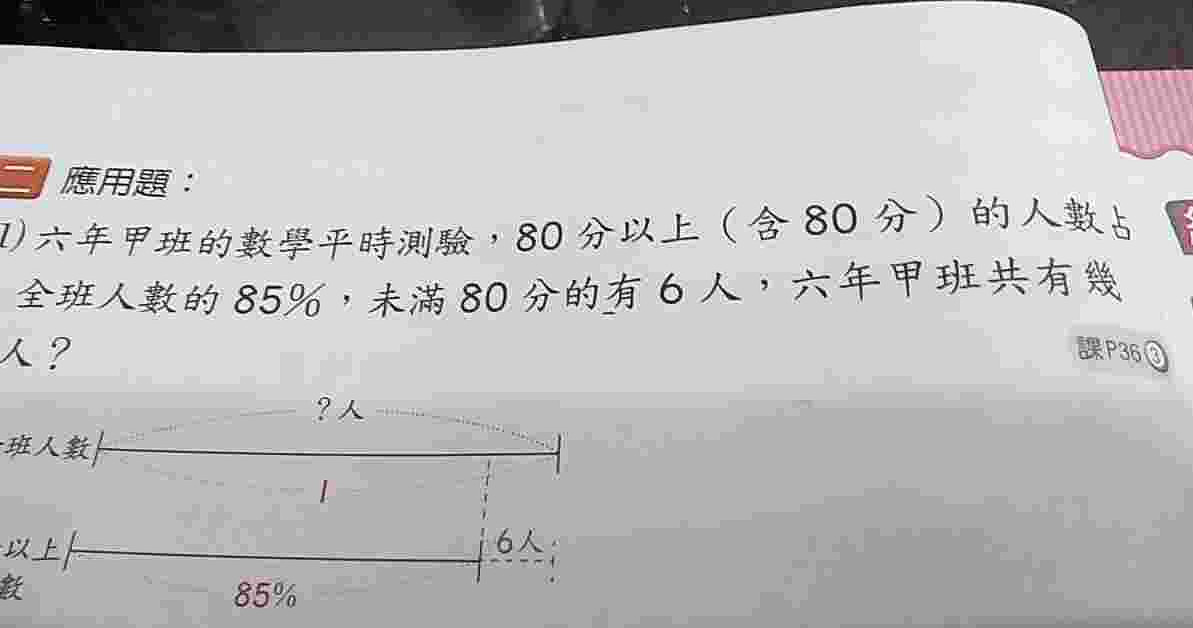 二 應用題：
(1)六年甲班的數學平時測驗，80分以上（含80分）的人數占
全班人數的85%，未滿80分的有6人，六年甲班共有幾
人？
課P36③
?人
班人數
1
以上
6人
數
85%